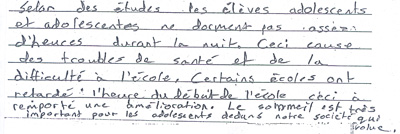 Selon des études les élèves adolescents
et adolescentes ne dorment pas assez
d'heures durant la nuit. Ceci cause
des troubles de santé et de la
difficulté à l'école. Certains écoles ont
retardé l'heure du début de l'école ceci à
remporté une amélioration. Le sommeil est très
important pour les adolescents dedans notre société qui
évolue.